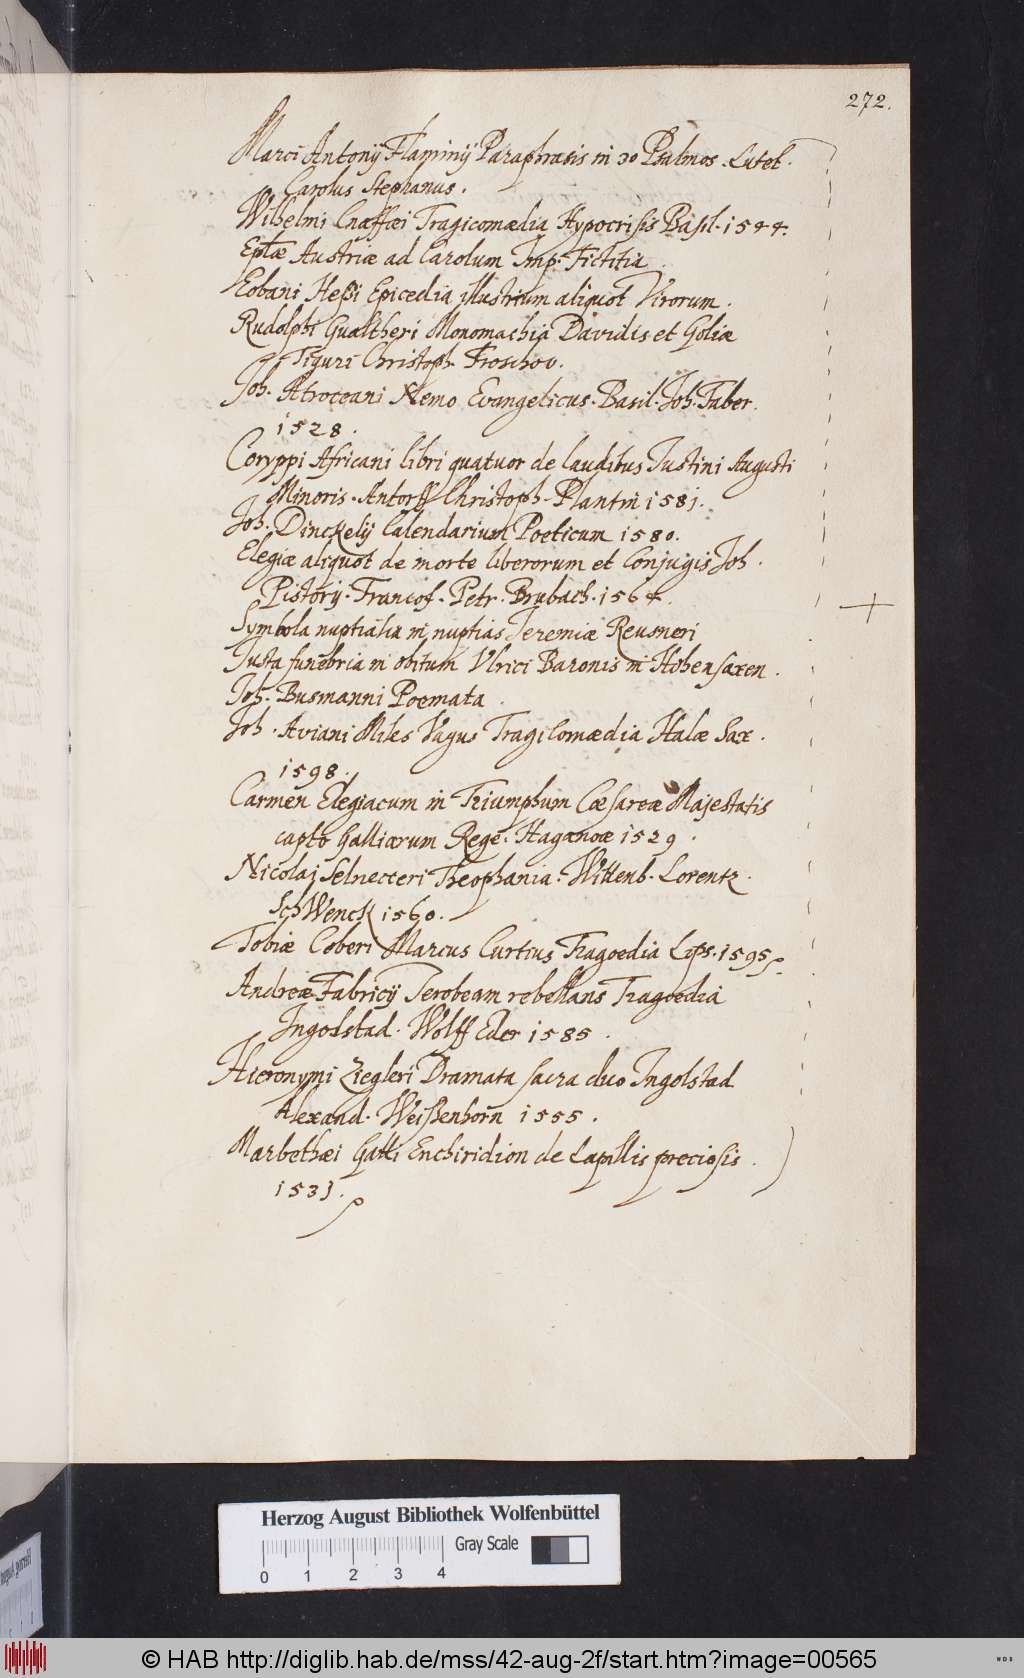 272.
Marci Antonij Flaminij Paraphrasis in 30 Psalmos. Lutet.
Carolus Stephanus.
Wilhelmi Gnaffæi Tragicomædia Hypocrisis Basil. 1544.
Eplæ Austriæ ad Carolum Imp. Fictitia.
Eobani Heßi Epicedia illustrium aliquot Virorum.
Rudolphi Gualtheri Monomachia Davidis et Goliæ
Tiguri Christoph. Froschov.
Joh. Atroceani Nemo Evangelicus. Basil. Joh. Faber.
1528.
Coryppi Africani libri quatuor de laudibus Justini Augusti
Minoris. Antorff Christoph. Plantin 1581.
Joh. Dinckelij Calendarium Poeticum 1580.
Elegiæ aliquot de morte liberorum et Conjugis Joh.
Pistorij. Francof. Petr. Brubach. 1564.
Symbola nuptialia in nuptias Jeremiæ Reusneri
Justa funebria in obitum Ulrici Baronis in Hohensaxen.
Joh. Busmanni Poemata.
Joh. Aviani Miles Vagus Tragicomædia Halæ Sax.
1598.
Carmen Elegiacum in Triumphum Cæsareæ Majestatis
capto Galliarum Rege. Haganoæ 1529.
Nicolaj Selnecceri Theophania. Wittenb. Lorentz.
SchWenck 1560.
Tobiæ Coberi Marcus Curtius Tragoedia Lips. 1595.
Andreæ Fabricij Jeroboam rebellans Tragoedia
Ingolstad. Wolff Eder 1585.
Hieronymi Ziegleri Dramata sacra duo Ingolstad
Alexand. Weißenhorn 1555.
Marbethæi Galli Enchiridion de Lapillis preciosis.
1531.
Herzog August Bibliothek Wolfenbüttel
Gray Scale
0 1 2 3 4
© HAB http://diglib.hab.de/mss/42-aug-2f/start.htm?image=00565